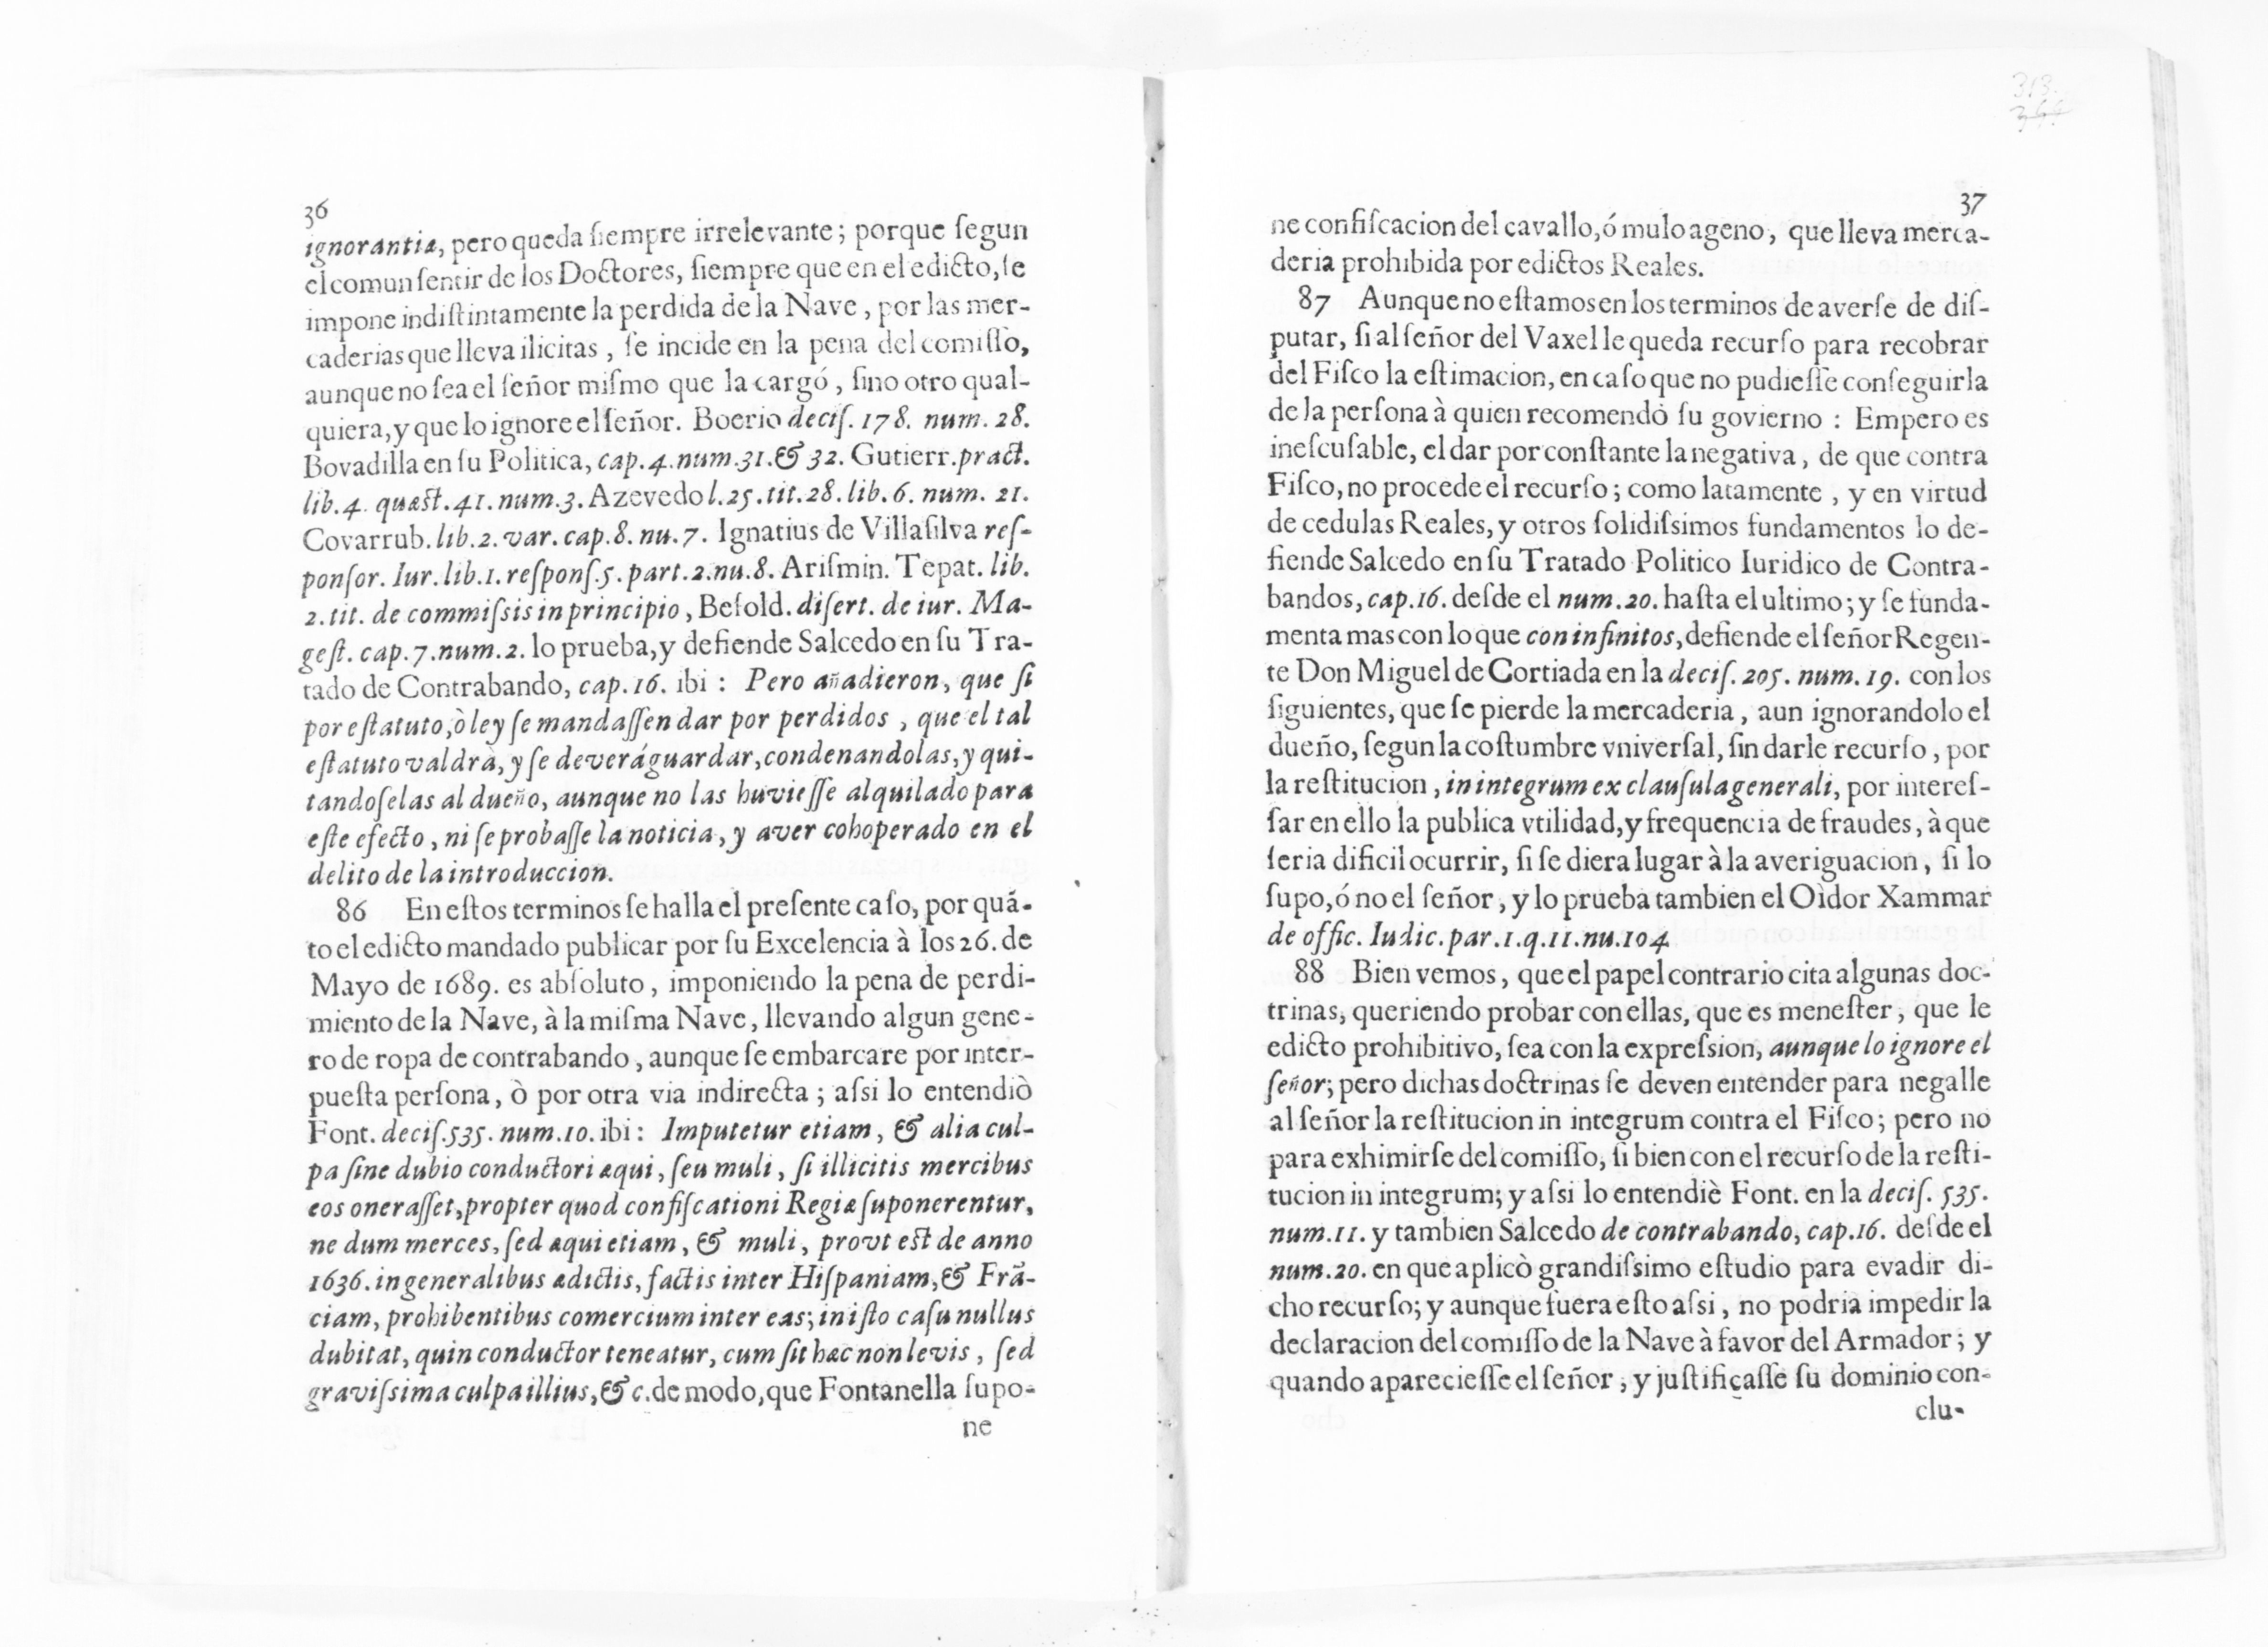 36
ignorantiæ, pero queda ſiempre irrelevante; porque ſegun
el comun ſentir de los Doctores, ſiempre que en el edicto, ſe
impone indiſtintamente la perdida de la Nave, por las mer-
caderias que lleva ilicitas, ſe incide en la pena del comiſſo,
aunque no ſea el ſeñor miſmo que la cargó, ſino otro qual-
quiera, y que lo ignore el ſeñor. Boerio deciſ. 178. num. 28.
Bovadilla en ſu Politica, cap. 4. num. 31. & 32. Gutierr. pract.
lib. 4. quæst. 41. num. 3. Azevedo l. 25. tit. 28. lib. 6. num. 21.
Covarrub. lib. 2. var. cap. 8. nu. 7. Ignatius de Villaſilva reſ-
ponſor. Iur. lib. 1. reſponſ. 5. part. 2. nu. 8. Ariſmin. Tepat. lib.
2. tit. de commiſsis in principio, Beſold. diſert. de iur. Ma-
geſt. cap. 7. num. 2. lo prueba, y defiende Salcedo en ſu Tra-
tado de Contrabando, cap. 16. ibi: Pero añadieron, que ſi
por eſtatuto, ò ley ſe mandaſſen dar por perdidos, que el tal
eſtatuto valdrà, y ſe deverá guardar, condenandolas, y qui-
tandoſelas al dueño, aunque no las huvieſſe alquilado para
eſte efecto, ni ſe probaſſe la noticia, y aver cohoperado en el
delito de la introduccion.
86 En eſtos terminos ſe halla el preſente caſo, por quã-
to el edicto mandado publicar por ſu Excelencia à los 26. de
Mayo de 1689. es abſoluto, imponiendo la pena de perdi-
miento de la Nave, à la miſma Nave, llevando algun gene-
ro de ropa de contrabando, aunque ſe embarcare por inter-
pueſta perſona, ò por otra via indirecta; aſsi lo entendiò
Font. deciſ. 535. num. 10. ibi: Imputetur etiam, & alia cul-
pa ſine dubio conductori æqui, ſeu muli, ſi illicitis mercibus
eos oneraſſet, propter quod confiſcationi Regiæ ſuponerentur,
ne dum merces, ſed æqui etiam, & muli, provt est de anno
1636. in generalibus ædictis, factis inter Hiſpaniam, & Frã-
ciam, prohibentibus comercium inter eas; in iſto caſu nullus
dubitat, quin conductor teneatur, cum ſit hæc non levis, ſed
graviſsima culpa illius, & c. de modo, que Fontanella ſupo-
ne
313.
37
ne confiſcacion del cavallo, ó mulo ageno, que lleva merca-
deria prohibida por edictos Reales.
87 Aunque no eſtamos en los terminos de averſe de diſ-
putar, ſi al ſeñor del Vaxel le queda recurſo para recobrar
del Fiſco la eſtimacion, en caſo que no pudieſſe conſeguirla
de la perſona à quien recomendó ſu govierno: Empero es
ineſcuſable, el dar por conſtante la negativa, de que contra
Fiſco, no procede el recurſo; como latamente, y en virtud
de cedulas Reales, y otros ſolidiſsimos fundamentos lo de-
fiende Salcedo en ſu Tratado Politico Iuridico de Contra-
bandos, cap. 16. deſde el num. 20. haſta el ultimo; y ſe funda-
menta mas con lo que con infinitos, defiende el ſeñor Regen-
te Don Miguel de Cortiada en la deciſ. 205. num. 19. con los
ſiguientes, que ſe pierde la mercaderia, aun ignorandolo el
dueño, ſegun la coſtumbre vniverſal, ſin darle recurſo, por
la reſtitucion, in integrum ex clauſula generali, por intereſ-
ſar en ello la publica vtilidad, y frequencia de fraudes, à que
ſeria dificil ocurrir, ſi ſe diera lugar à la averiguacion, ſi lo
ſupo, ó no el ſeñor, y lo prueba tambien el Oìdor Xammar
de offic. Iudic. par. 1. q. 11. nu. 104
88 Bien vemos, que el papel contrario cita algunas doc-
trinas, queriendo probar con ellas, que es meneſter, que le
edicto prohibitivo, ſea con la expreſsion, aunque lo ignore el
ſeñor; pero dichas doctrinas ſe deven entender para negalle
al ſeñor la reſtitucion in integrum contra el Fiſco; pero no
para exhimirſe del comiſſo, ſi bien con el recurſo de la reſti-
tucion in integrum; y aſsi lo entendiè Font. en la deciſ. 535.
num. 11. y tambien Salcedo de contrabando, cap. 16. deſde el
num. 20. en que aplicò grandiſsimo eſtudio para evadir di-
cho recurſo; y aunque fuera eſto aſsi, no podria impedir la
declaracion del comiſſo de la Nave à favor del Armador; y
quando aparecieſſe el ſeñor, y juſtificaſſe ſu dominio con-
clu-